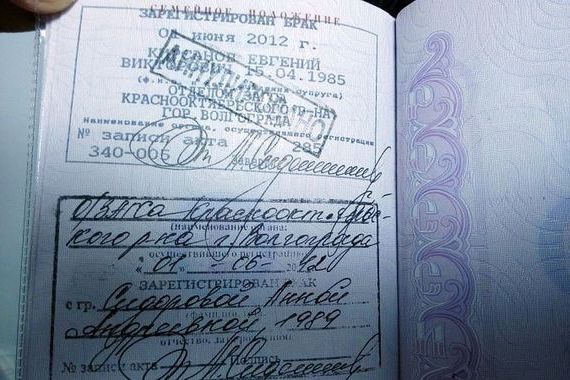 СЕМЕЙНОЕ ПОЛОЖЕНИЕ
ЗАРЕГИСТРИРОВАН БРАК
01 июня 2012 г.
ЕВГЕНИЙ
ВИКТОРОВИЧ 15.04.1985
супруга)
ОТДЕЛОМ ЗАГСА
КРАСНООКТЯБРЬСКОГО Р-НА
ГОР. ВОЛГОГРАДА
Наименование органа, осуществившего регистрацию
№ записи акта 285
340-006
АННУЛИРОВАНО
О/ЗАГСа Краснооктябрьс-
кого р-на г. Волгограда
(наименование органа:
осуществившего регистрацию)
« 01 » - 06 - 2012
ЗАРЕГИСТРИРОВАН БРАК
с гр. Сидоровой Анной
Андреевной, 1989
отчество, дата рождения)
№ записи акта Подпись